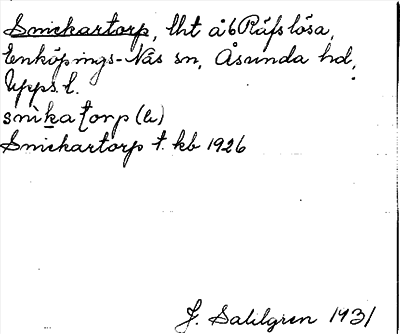 Snickartorp, lht å b Räfslösa,
Enköpings-Näs sn, Åsunda hd,
Upps. l.
snìkatorp (a)
Snickartorp t. kb 1926
J. Sahlgren 1931